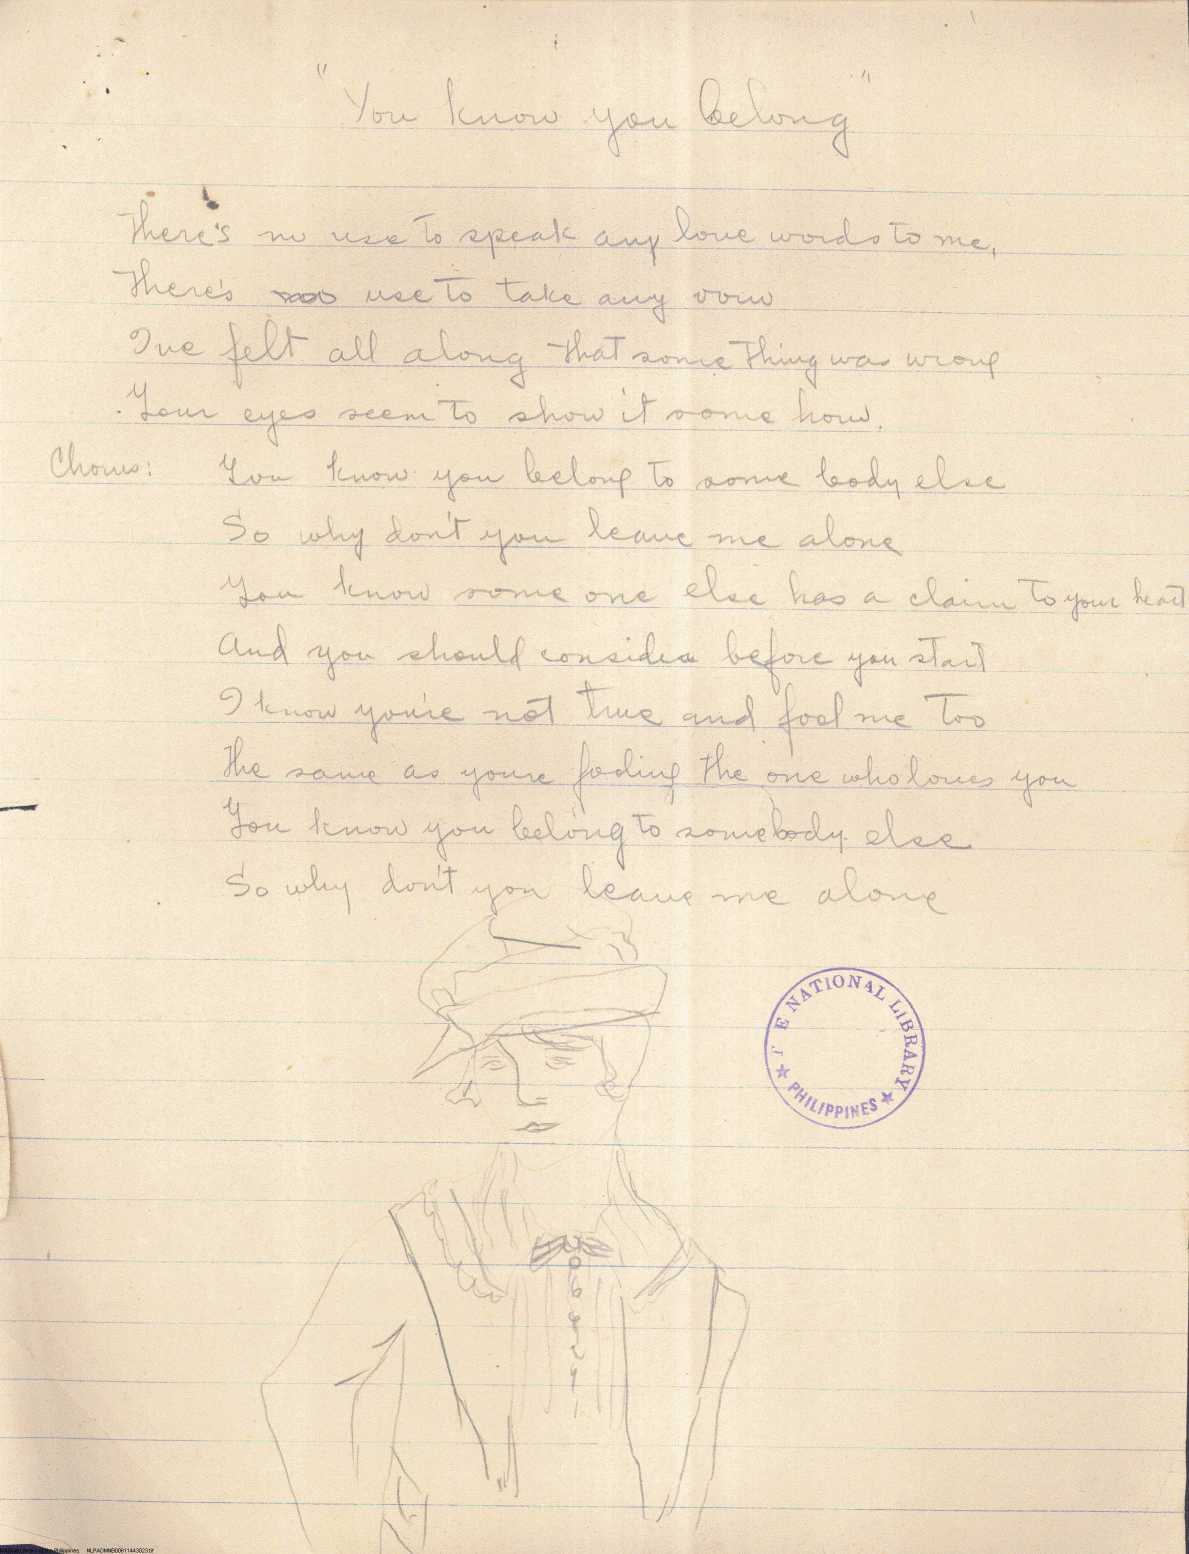 "You know you belong"
There's no use to speak any love words to me,
There's use to take any vow
I've felt all along that some thing was wrong
Your eyes seem to show it some how.
Chorus: You know you belong to some body else
So why don't you leave me alone
You know some one else has a claim to your heart
And you should consider before you start
I know you're not true and fool me too
The same as youre fooling the one who loves you
You know you belong to somebody else
So why don't you leave me alone
T E NATIONAL LIBRARY
★ PHILIPPINES ★
Philippines